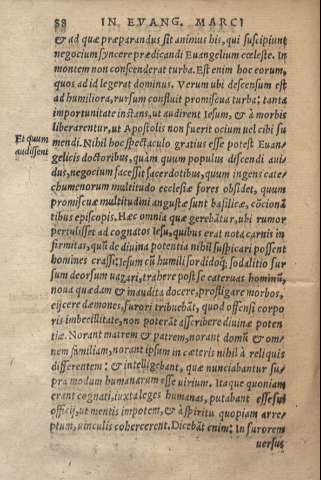 58 IN EVANG. MARCI
& ad quæ præparandus sit animus his, qui suscipiunt
negocium syncere prædicandi Euangelium cœleste. In
montem non conscenderat turba. Est enim hoc eorum,
quos ad id legerat dominus. Verum ubi descensum est
ad humiliora, rursum confluit promiscua turba: tanta
importunitate instans, ut audirent Iesum, & à morbis
liberarentur, ut Apostolis non fuerit ocium uel cibi su
Et quum
audissent
mendi. Nihil hoc spectaculo gratius esse potest Euan-
gelicis doctoribus, quàm quum populus discendi aui
dus, negocium facessit sacerdotibus, quum ingens cate
chumenorum multitudo ecclesiæ fores obsidet, quum
promiscuæ multitudini angustæ sunt basilicæ, cōcionā
tibus episcopis. Hæc omnia quæ gerebātur, ubi rumor
pertulisset ad cognatos Iesu, quibus erat nota carnis in
firmitas, quū de diuina potentia nihil suspicari possent
homines crassi: Iesum cū humili sordidoq; sodalitio sur
sum deorsum uagari, trahere post se cateruas hominū,
noua quædam & inaudita docere, profligare morbos,
eijcere dæmones, furori tribuebāt, quod offensi corpo
ris imbecillitate, non poterāt asscribere diuinæ poten
tiæ. Norant matrem & patrem, norant domū & om-
nem familiam, norant ipsum in cæteris nihil à reliquis
differentem: & intelligebant, quæ nunciabantur su-
pra modum humanarum esse uirium. Itaque quoniam
erant cognati, iuxta leges humanas, putabant esse sui
officij, ut mentis impotem, & à spiritu quopiam arre-
ptum, uinculis cohercerent. Dicebāt enim: In furorem
uersus